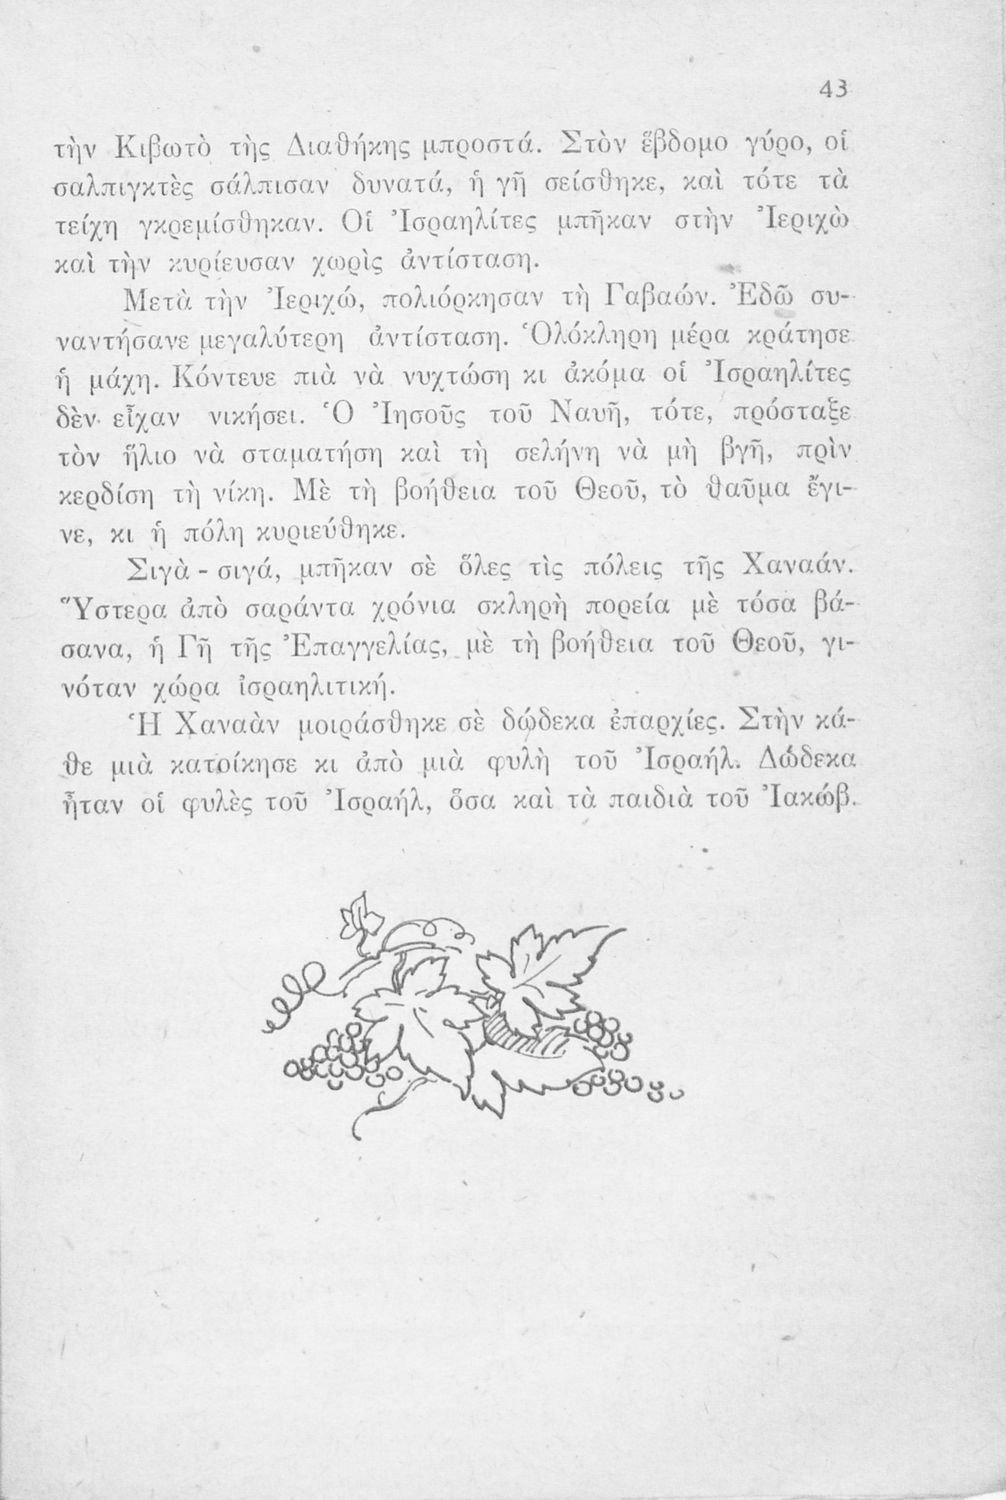 43
τὴν Κιβωτὸ τὴς Διαθήκης μπροστά. Στὸν ἕβδομο γύρο, οἱ
σαλπιγκτὲς σάλπισαν δυνατά, ἡ γῆ σείσθηκε, καὶ τότε τὰ
τείχη γκρεμίσθηκαν. Οἱ Ἰσραηλίτες μπῆκαν στὴν Ἰεριχὼ
καὶ τὴν κυρίευσαν χωρὶς ἀντίσταση.
Μετὰ τὴν Ἰεριχώ, πολιόρκησαν τὴ Γαβαών. Ἐδῶ συ-
ναντήσανε μεγαλύτερη ἀντίσταση. Ὁλόκληρη μέρα κράτησε
ἡ μάχη. Κόντευε πιὰ νὰ νυχτώση κι ἀκόμα οἱ Ἰσραηλίτες
δὲν εἶχαν νικήσει. Ὁ Ἰησοῦς τοῦ Ναυῆ, τότε, πρόσταξε
τὸν ἥλιο νὰ σταματήση καὶ τὴ σελήνη νὰ μὴ βγῆ, πρὶν
κερδίση τὴ νίκη. Μὲ τὴ βοήθεια τοῦ Θεοῦ, τὸ θαῦμα ἔγι-
νε, κι ἡ πόλη κυριεύθηκε.
Σιγὰ - σιγά, μπῆκαν σὲ ὅλες τὶς πόλεις τῆς Χαναάν.
Ὕστερα ἀπὸ σαράντα χρόνια σκληρὴ πορεία μὲ τόσα βά-
σανα, ἡ Γῆ τῆς Ἐπαγγελίας, μὲ τὴ βοήθεια τοῦ Θεοῦ, γι-
νόταν χώρα ἰσραηλιτική.
Ἡ Χαναὰν μοιράσθηκε σὲ δώδεκα ἐπαρχίες. Στὴν κά-
θε μιὰ κατοίκησε κι ἀπὸ μιὰ φυλὴ τοῦ Ἰσραήλ. Δώδεκα
ἦταν οἱ φυλὲς τοῦ Ἰσραήλ, ὅσα καὶ τὰ παιδιὰ τοῦ Ἰακώβ.